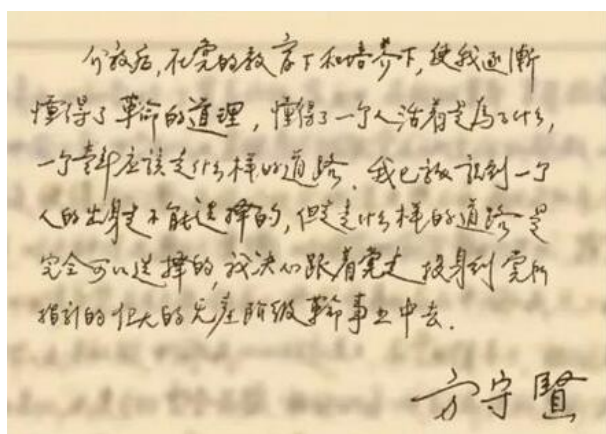 介放后,在党的教育下和培养下,使我逐渐
懂得了革命的道理,懂得了一个人活着是为了什么,
一个青年应该走什么样的道路。我已认识到一个
人的出身是不能选择的,但走什么样的道路是
完全可以选择的,我决心跟着党走投身到党所
指引的伟大的无产阶级革命事业中去。
方守贤